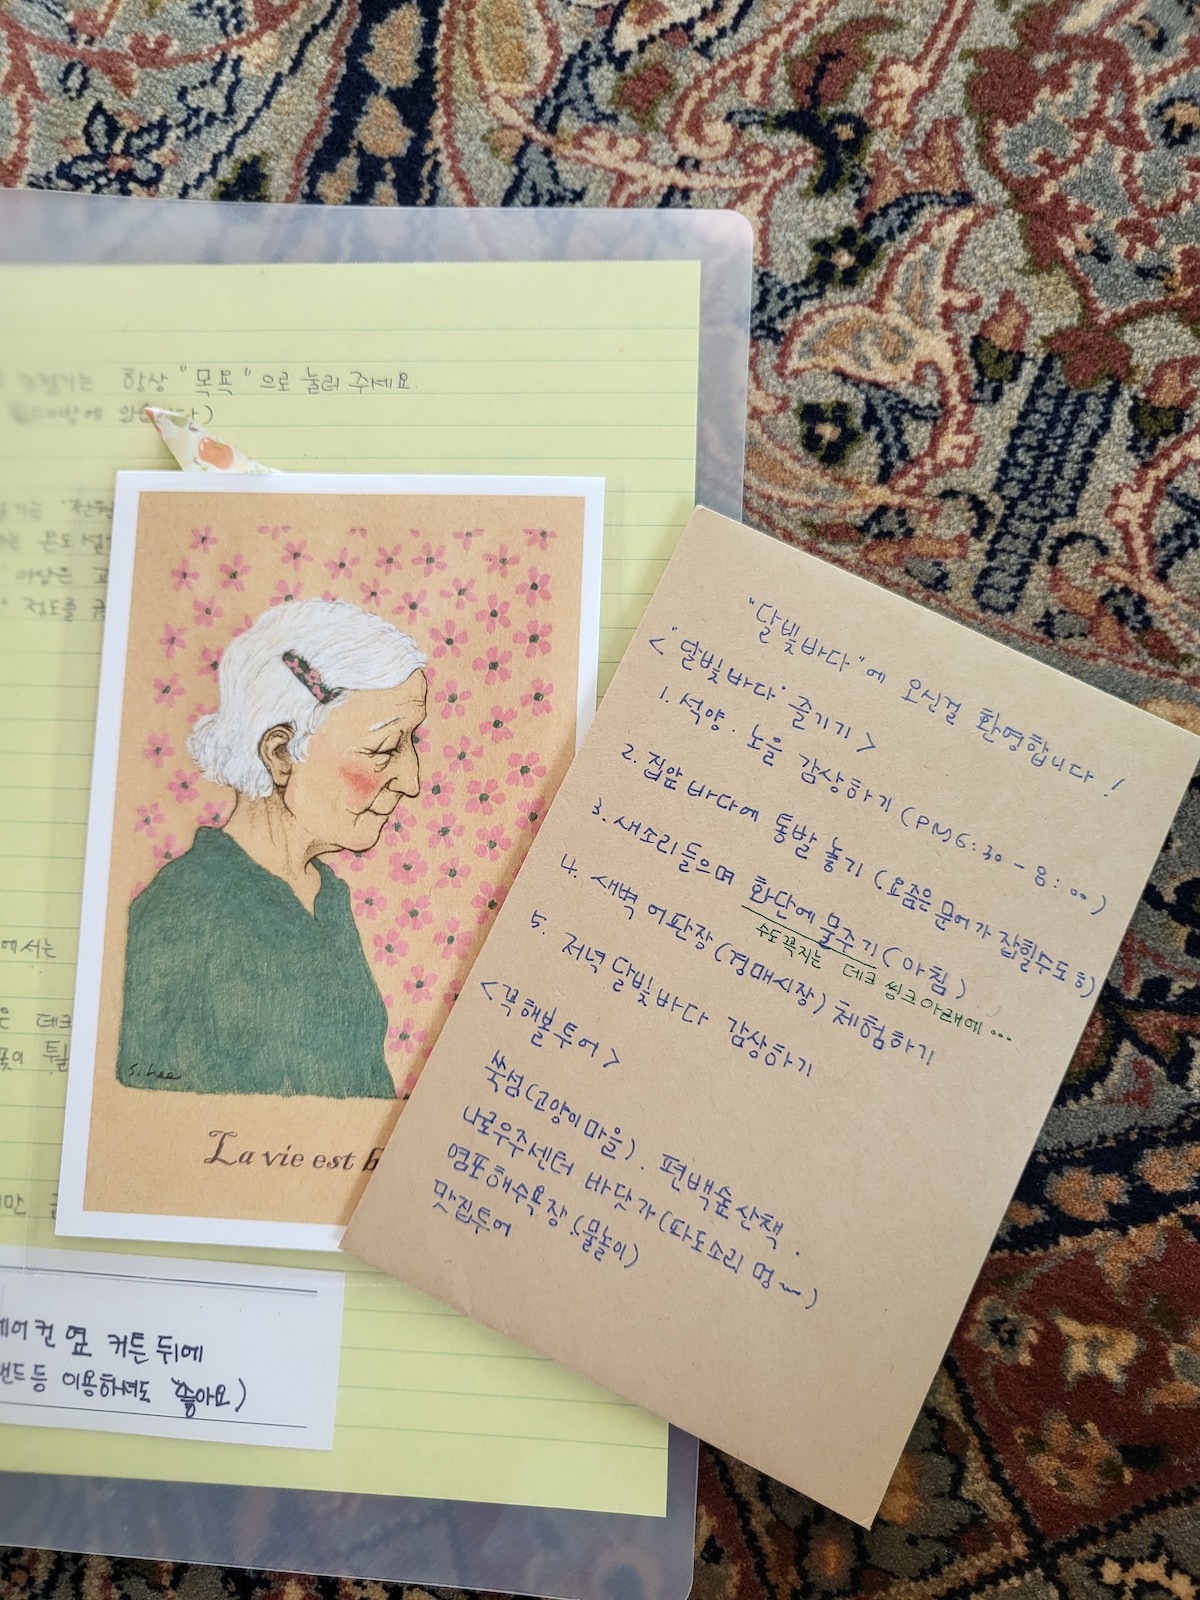 항상 "목욕"으로 눌러 주세요.
전원
온도
이상은
정도를
에서는
데크
옆 커튼 뒤에
이용하셔도 좋아요)
S. Lee
La vie est
"달빛바다"에 오신걸 환영합니다!
<"달빛바다" 즐기기>
1. 석양. 노을 감상하기 (PM 6:30 - 8:00)
2. 집앞 바다에 통발 놓기 (요즘은 문어가 잡힐수도 ㅎ)
3. 새소리 들으며 화단에 물주기 (아침)
수도꼭지는 데크 씽크 아래에...
4. 새벽 어판장 (경매시장) 체험하기
5. 저녁 달빛바다 감상하기
<꼭해볼 투어>
쑥섬 (고양이 마을). 편백숲 산책.
나로우주센터 바닷가 (파도소리 멍~)
염포해수욕장 (물놀이)
맛집투어